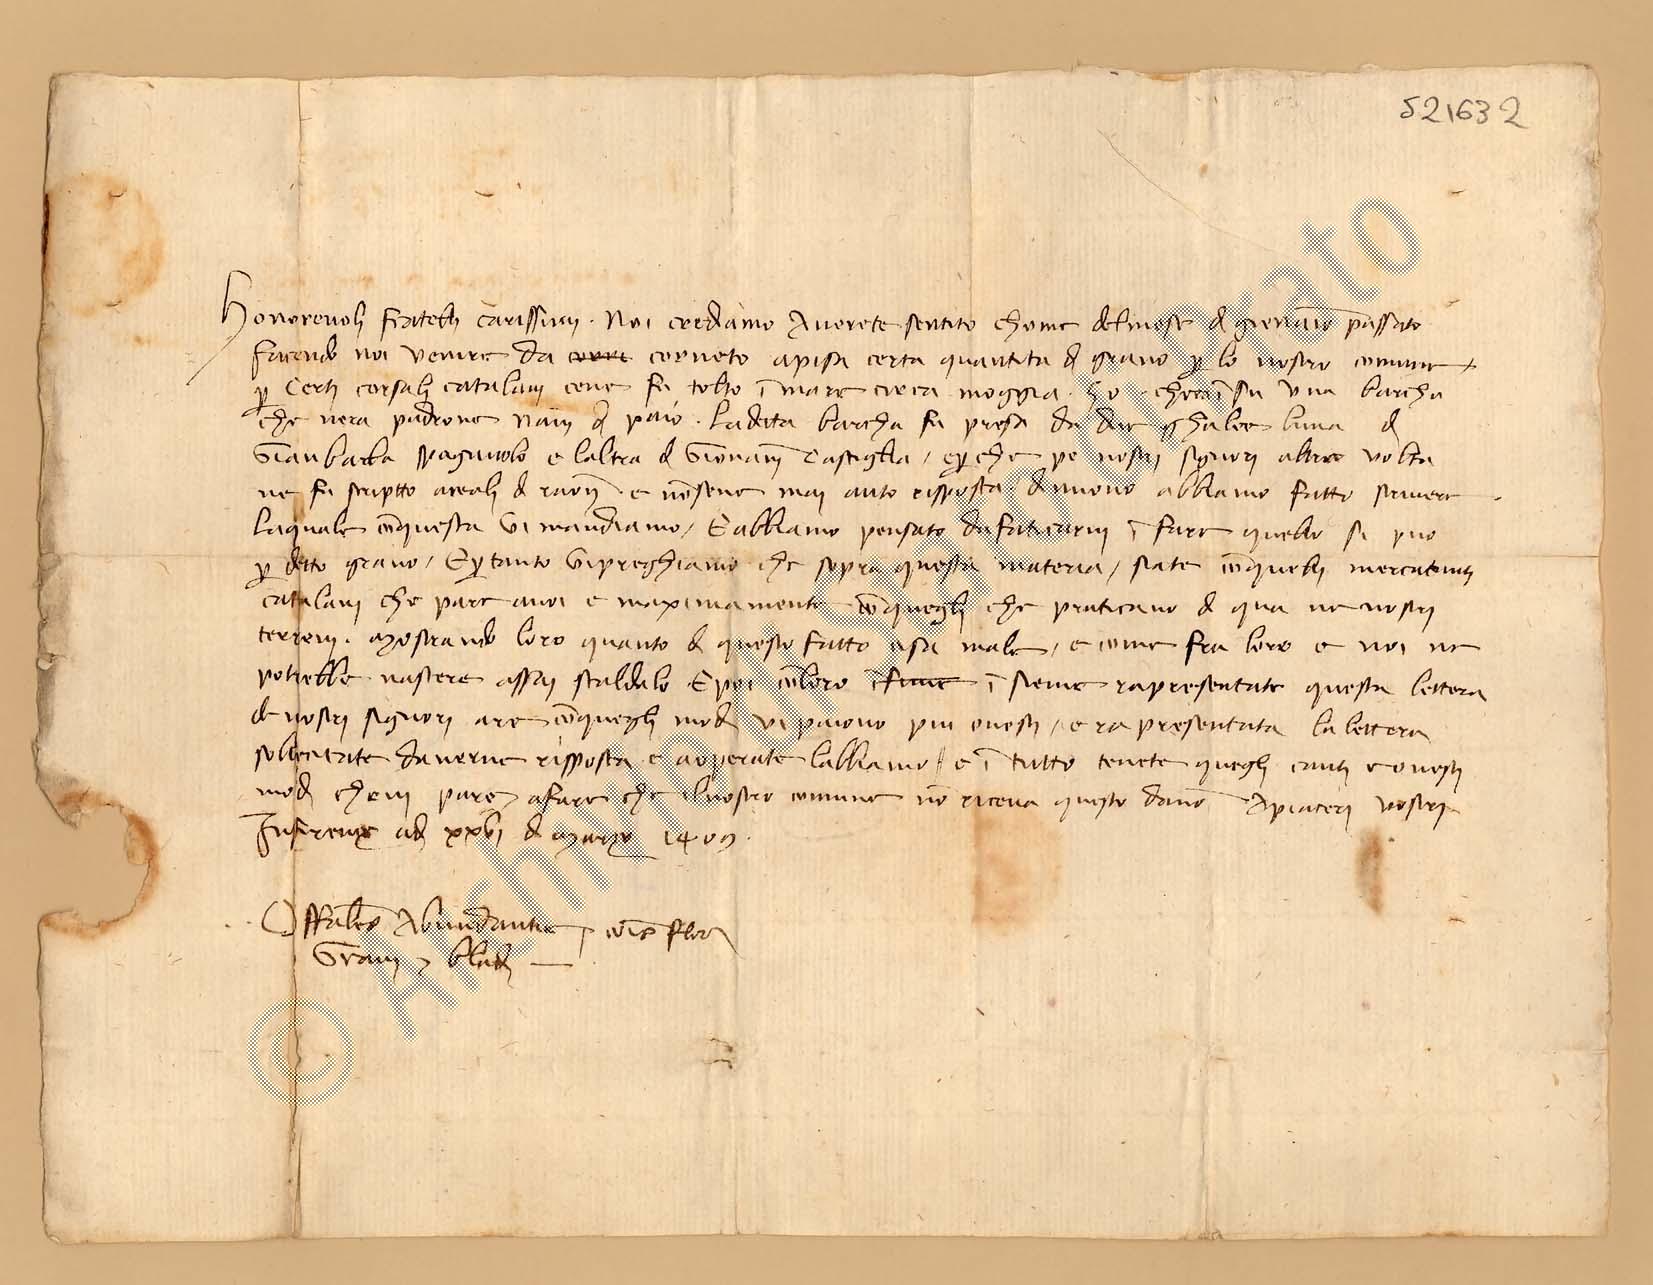 521632
Honorevoli fratelli carissimi. Noi crediamo averete sentito chome del mese di giennaio passato
facendo noi venire da corneto a pisa certa quantita di grano per lo nostro comune
per certi corsali catalani cene fu tolto in mare circa moggia 50 che in su una barcha
che nera padrone Nani di paio. la detta barcha fu presa da due ghalee luna di
Gian barba spagnuolo e laltra di Giovanni Castiglia, e perche pe nostri signori altre volta
ne fu scriptto a reali di raona e non sene mai auto risposta di nuovo abbiamo fatto scrivere
laquale con questa vi mandiamo, E abbiamo pensato daffaticarvi in fare quello si puo
per detto grano, E pertanto vi preghiamo che sopra questa materia, siate con quelli mercatanti
catalani che pare a voi e maximamente con quegli che praticano di qua ne nostri
terreni. Mostrando loro quanto di questo fatto cisa male, e come fra loro e noi ne
potrebbe nascere assai scandalo. E poi con loro insieme rapresentate questa lettera
de nostri signori a re con quegli modi vi paiono piu onesti, e rapresentata la lettera
sollecitate daverne risposta e adoperate labbiamo // e in tutto tenete quegli cauti e onesti
modi che vi pare, a fare che il nostro comune non riceva questo danno. A piaceri vostri
In firenze adi XXVI di Marzo 1409.
Offitiales Abundantie
Grani et bladi
comunis Flor
© Archivio di Stato di Prato